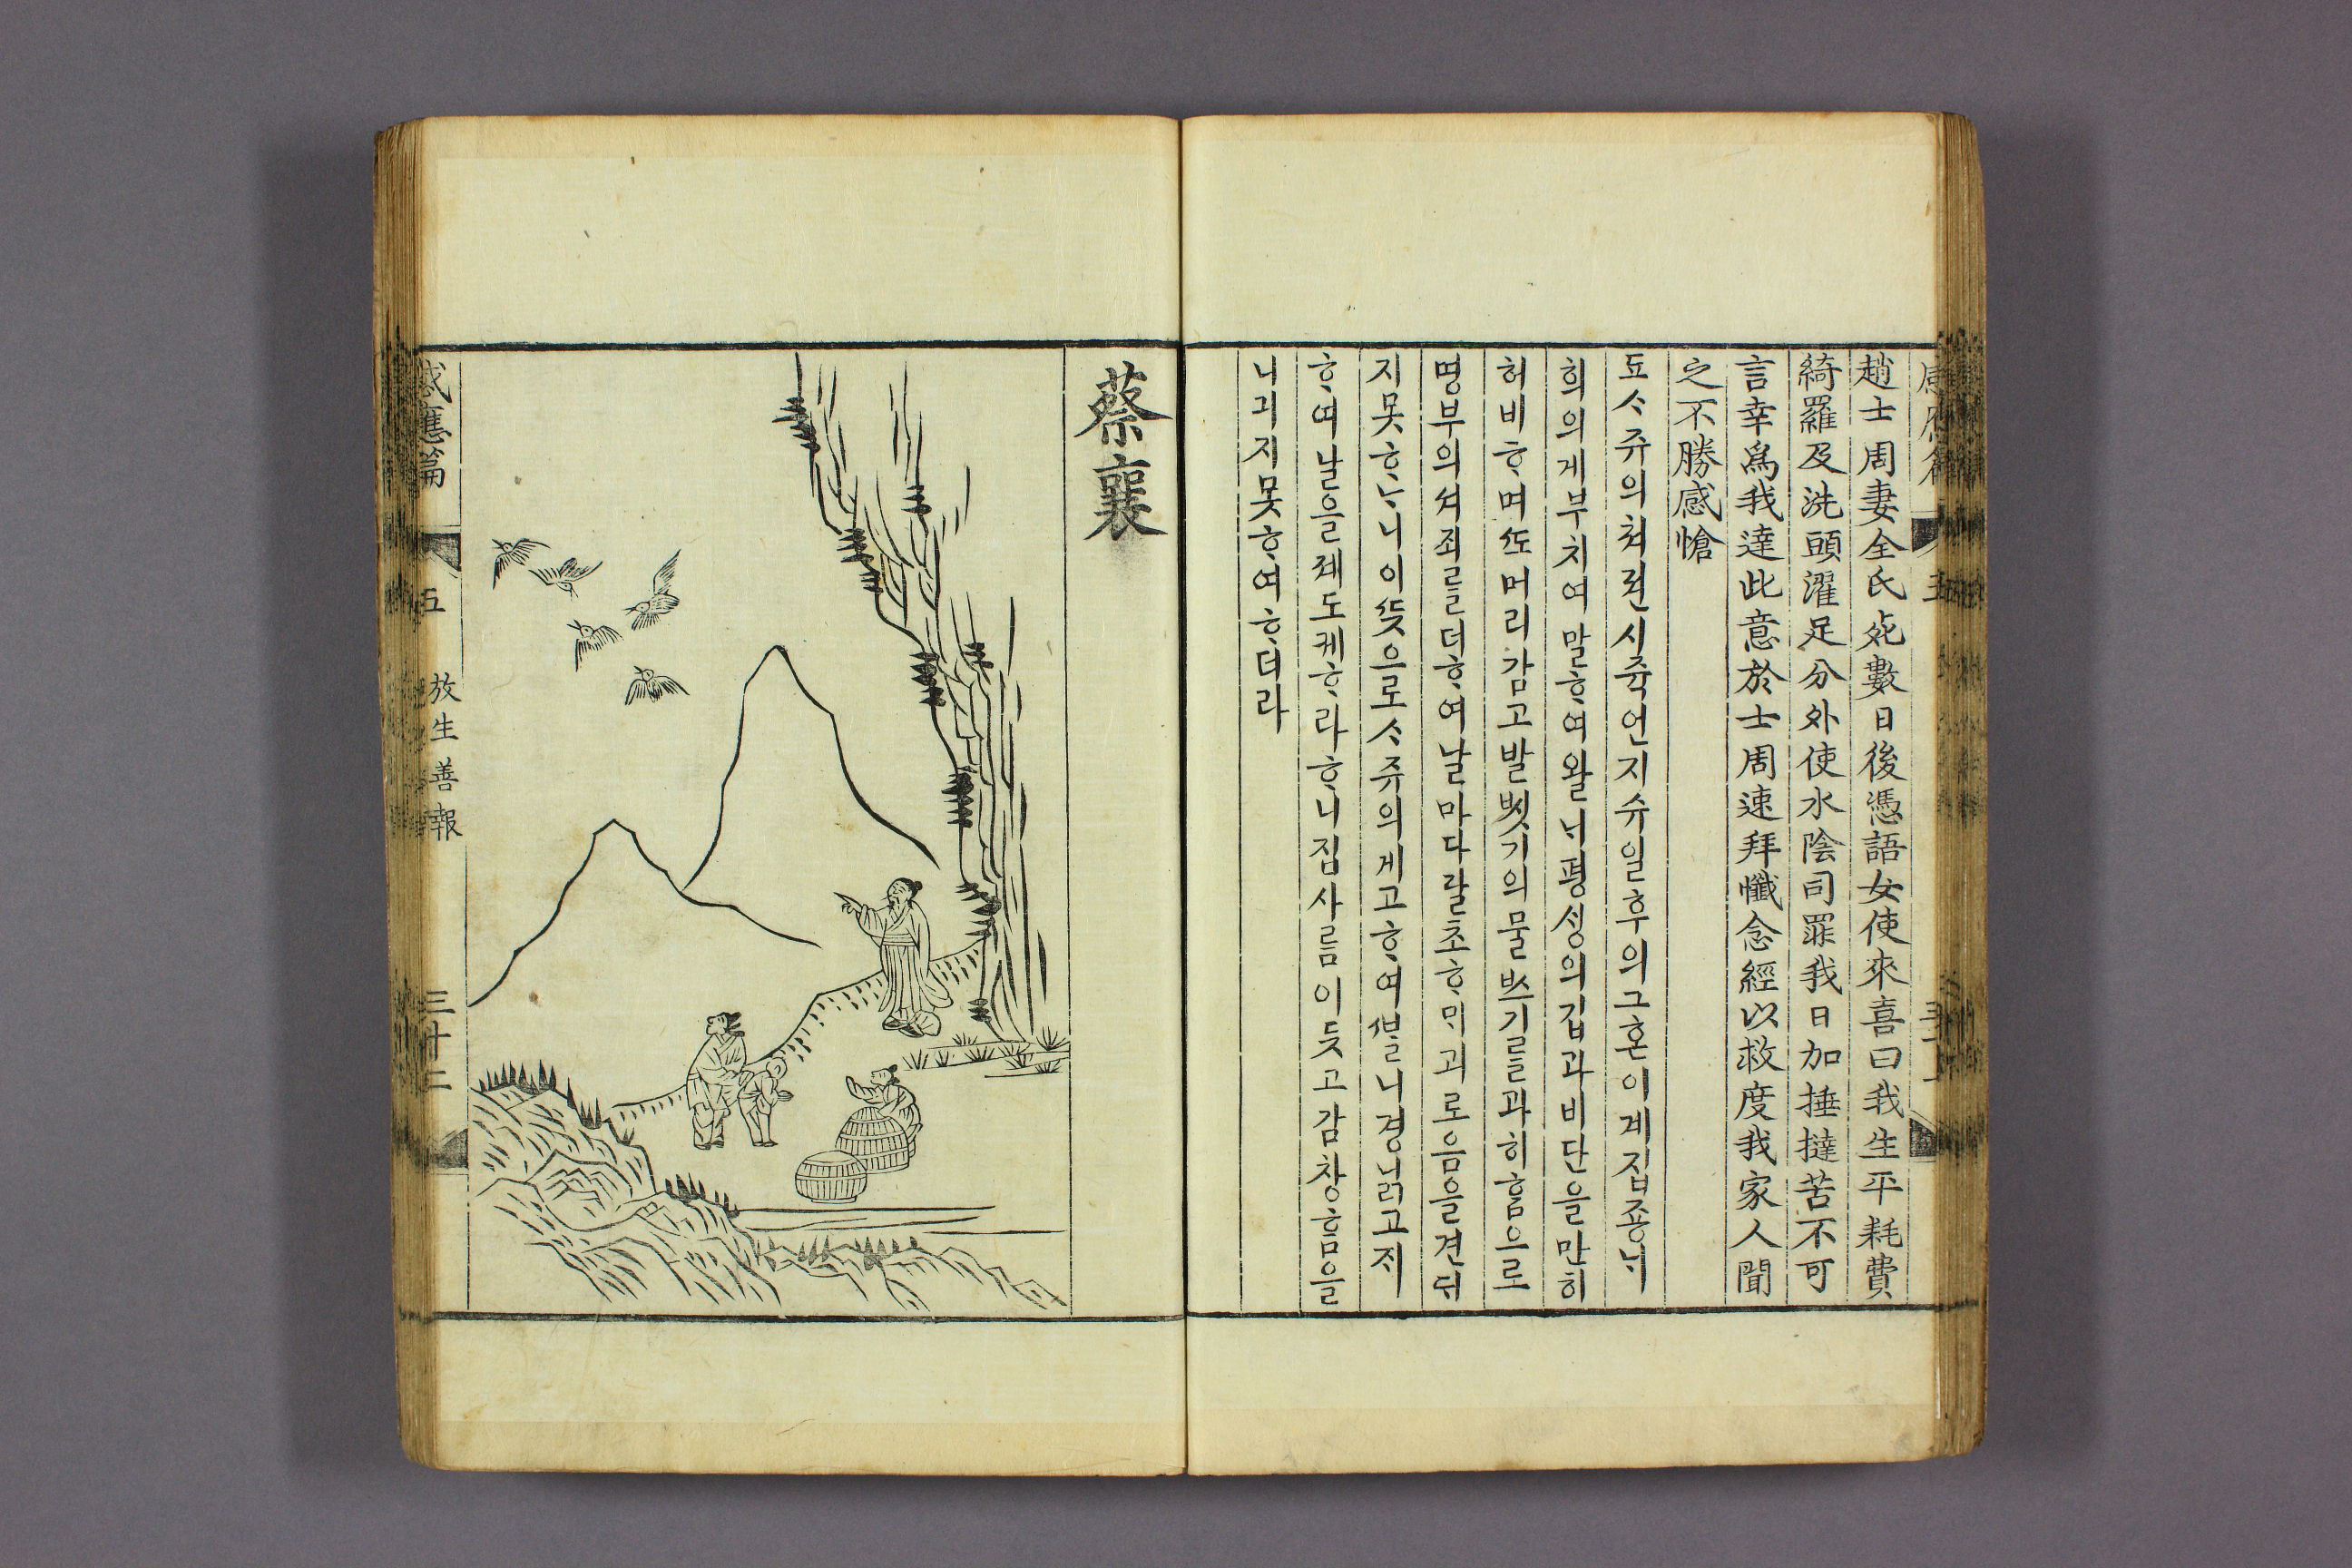 趙士周妻全氏死數日後憑語女使來喜曰我生平耗費
綺羅及洗頭濯足分外使水陰司罪我日加捶撻苦不可
言幸爲我達此意於士周速拜懺念經以救度我家人聞
之不勝感愴
됴ᄉᆞ쥬의쳐젼시죽언지슈일후의그혼이계집죵ᄂᆡ
희의게부치여말ᄒᆞ여왈ᄂᆡ평ᄉᆡᆼ의깁과비단을만히
허비ᄒᆞ며ᄯᅩ머리감고발ᄡᅵᆺ기의물ᄡᅳ기를과히ᄒᆞᆷ으로
명부의셔죄를더ᄒᆞ여날마다달초ᄒᆞᄆᆡ괴로음을견ᄃᆡ
지못ᄒᆞᄂᆞ니이ᄯᅳᆺ으로ᄉᆞ쥬의게고ᄒᆞ여ᄲᆞᆯ니경닑고ᄌᆡ
ᄒᆞ여날을졔도케ᄒᆞ라ᄒᆞ니집사ᄅᆞᆷ이듯고감창ᄒᆞᆷ을
니긔지못ᄒᆞ여ᄒᆞ더라
蔡襄
感應篇 五 放生善報 三十二